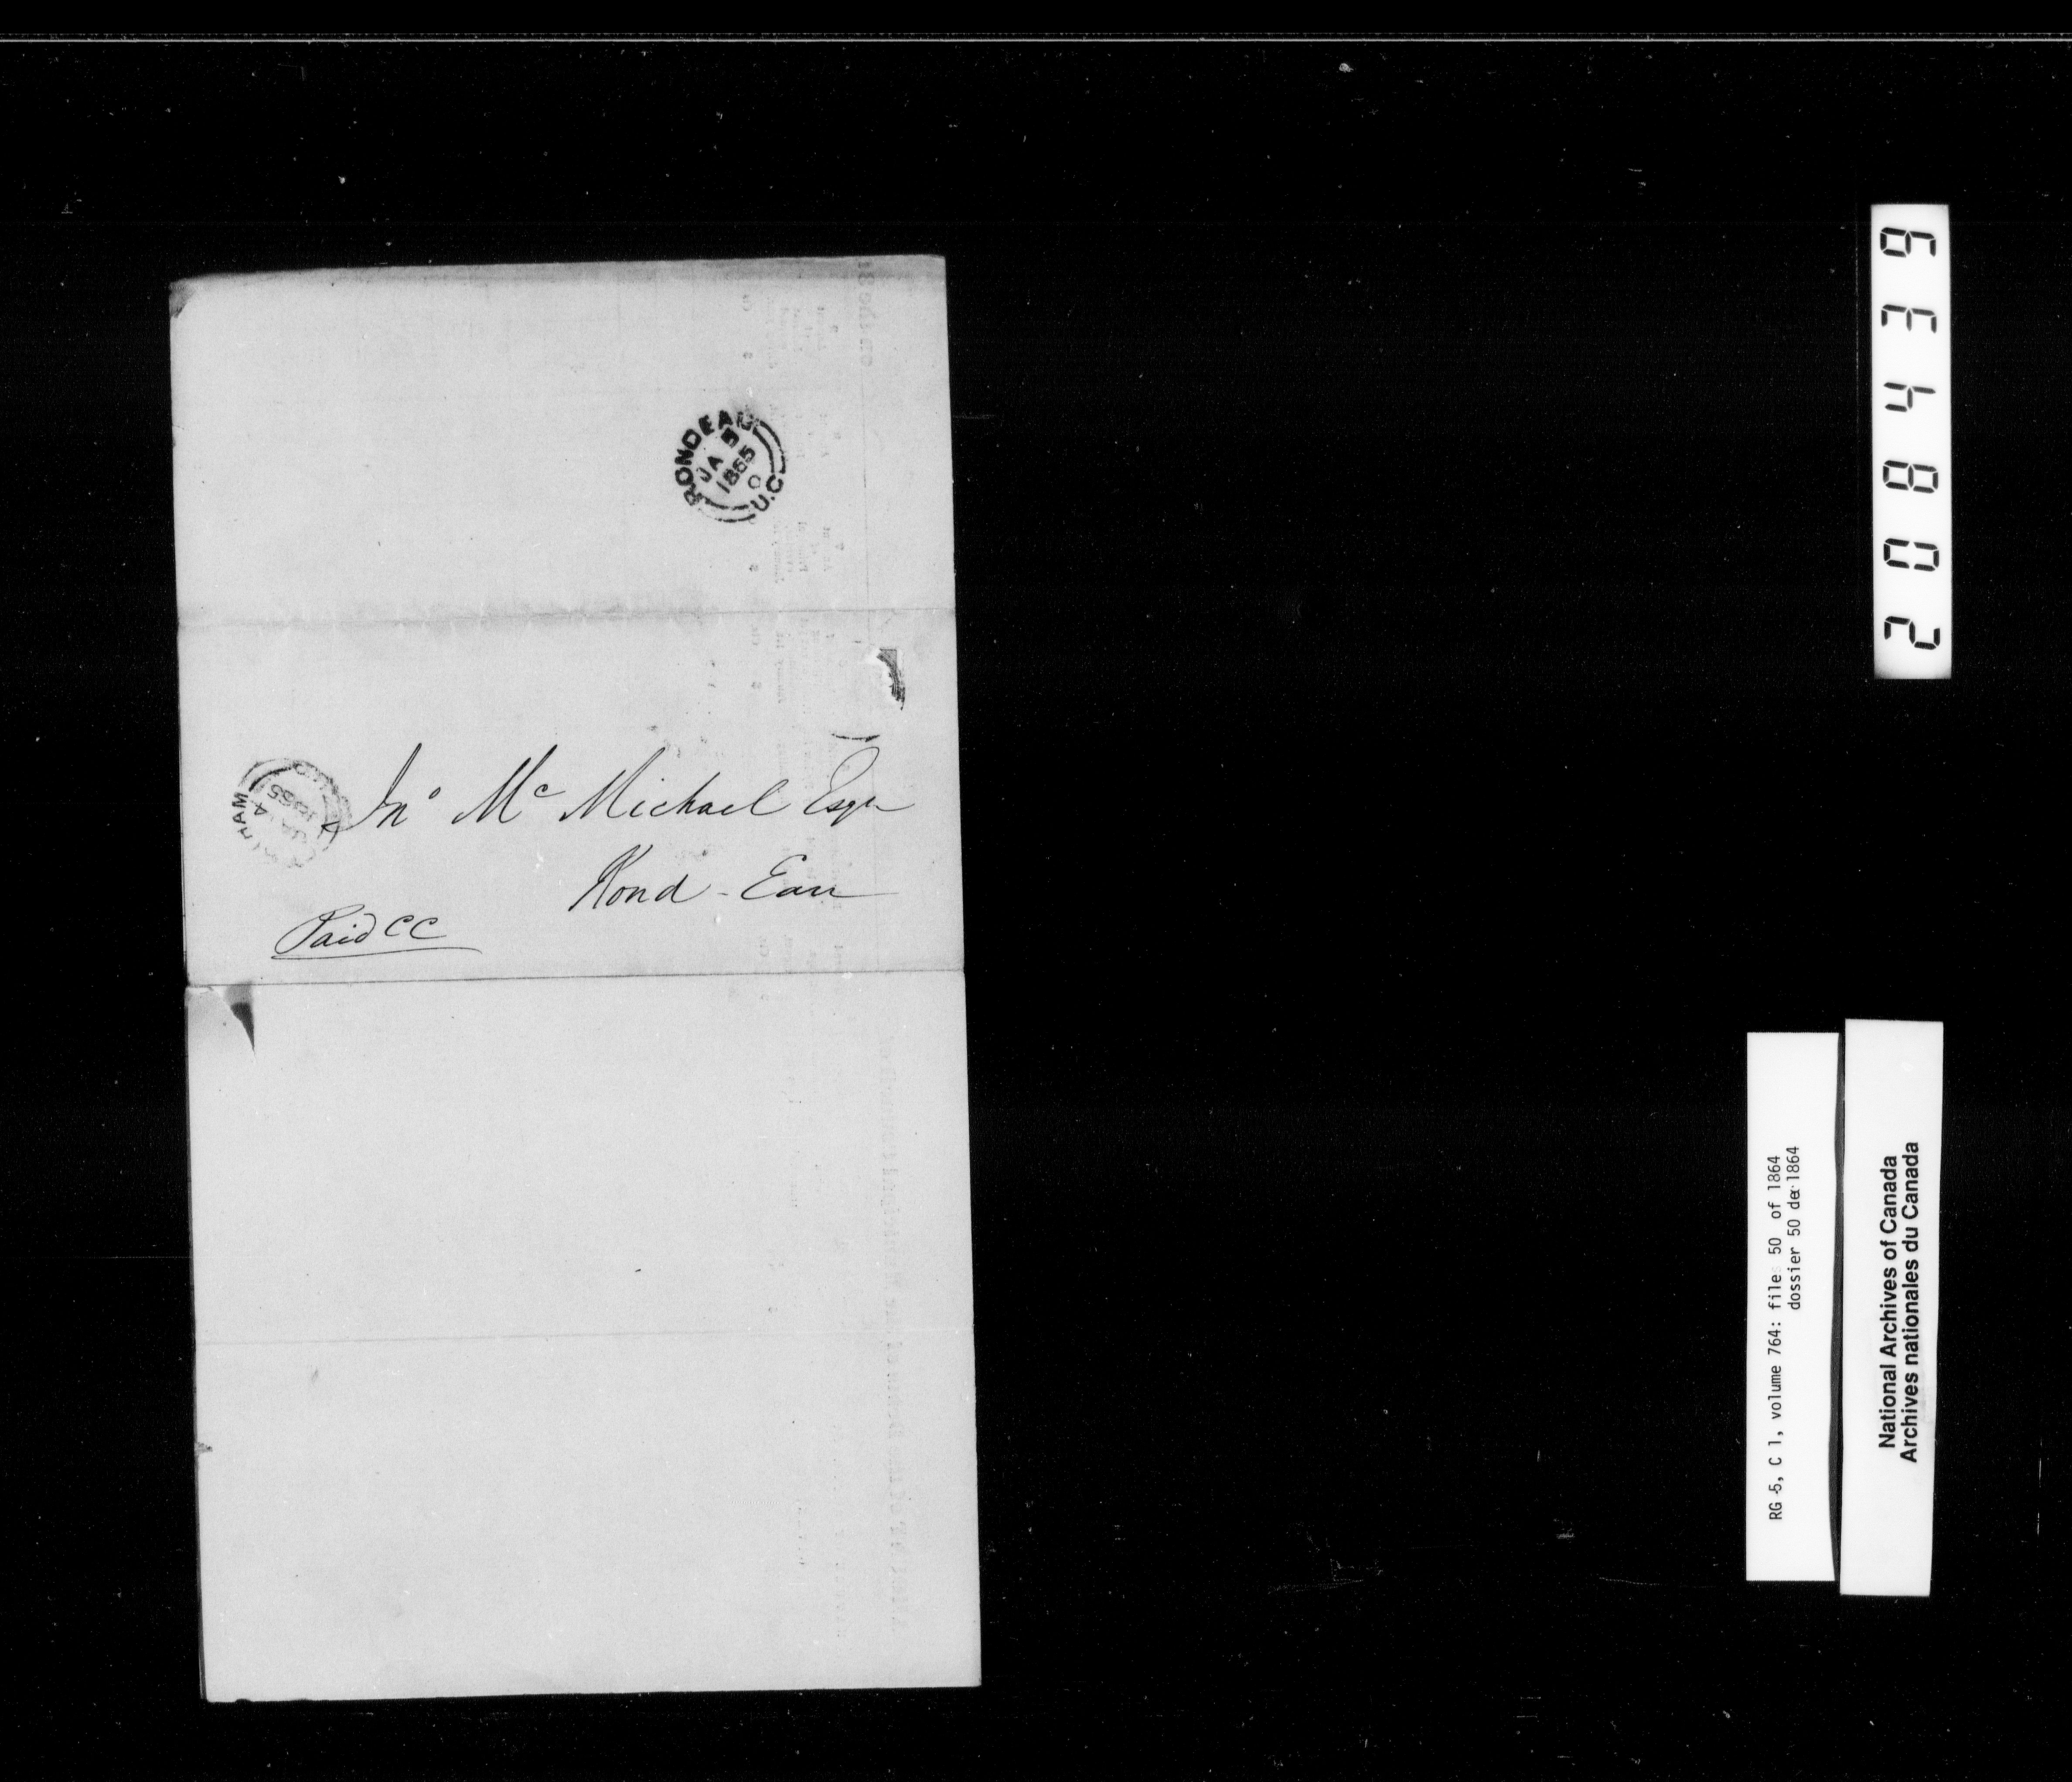 RONDEAU
JA 5
1865
U.C
HAM
JA 4
1865
Jnº Mc Michael Esqr
Rond-Eau
Paid CC
208439
RG 5, C 1, volume 764: file 50 of 1864
dossier 50 de 1864
National Archives of Canada
Archives nationales du Canada